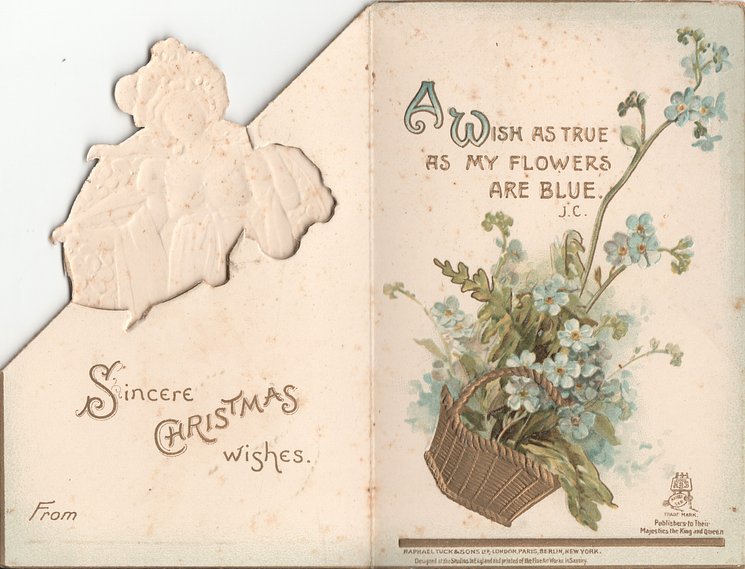 Sincere
Christmas
wishes.
From
A Wish as true
as my flowers
are blue.
J.C.
TRADE MARK.
Publishers to Their
Majesties the King and Queen
RAPHAEL TUCK & SONS LTD, LONDON, PARIS, BERLIN, NEW YORK.
Designed at the Studios in England and printed at the Fine Art Works in Saxony.